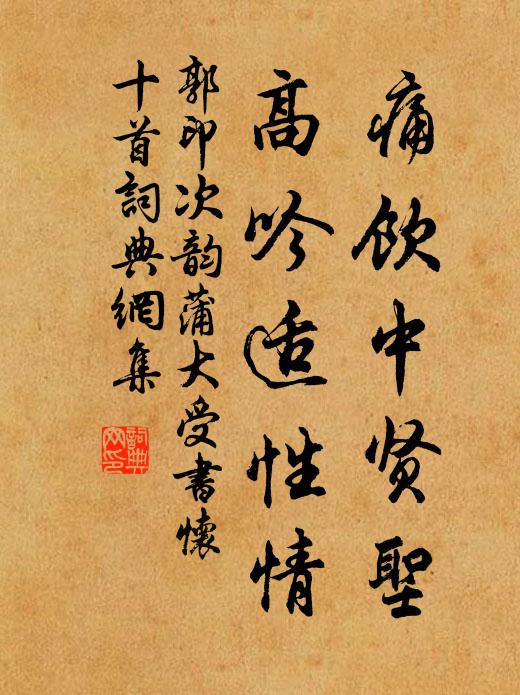 痛飲中贤聖
高吟适性情
郭印次韵蒲大受書懷
十首詞典網集
詞典网印